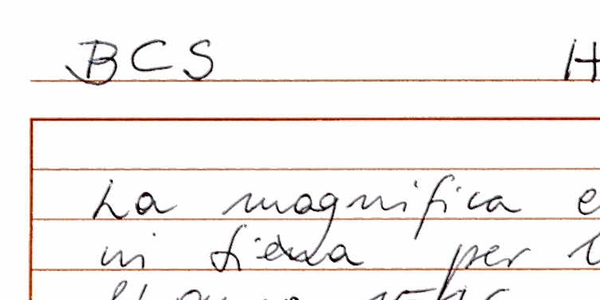 BCS H
La magnifica e
in Siena per l